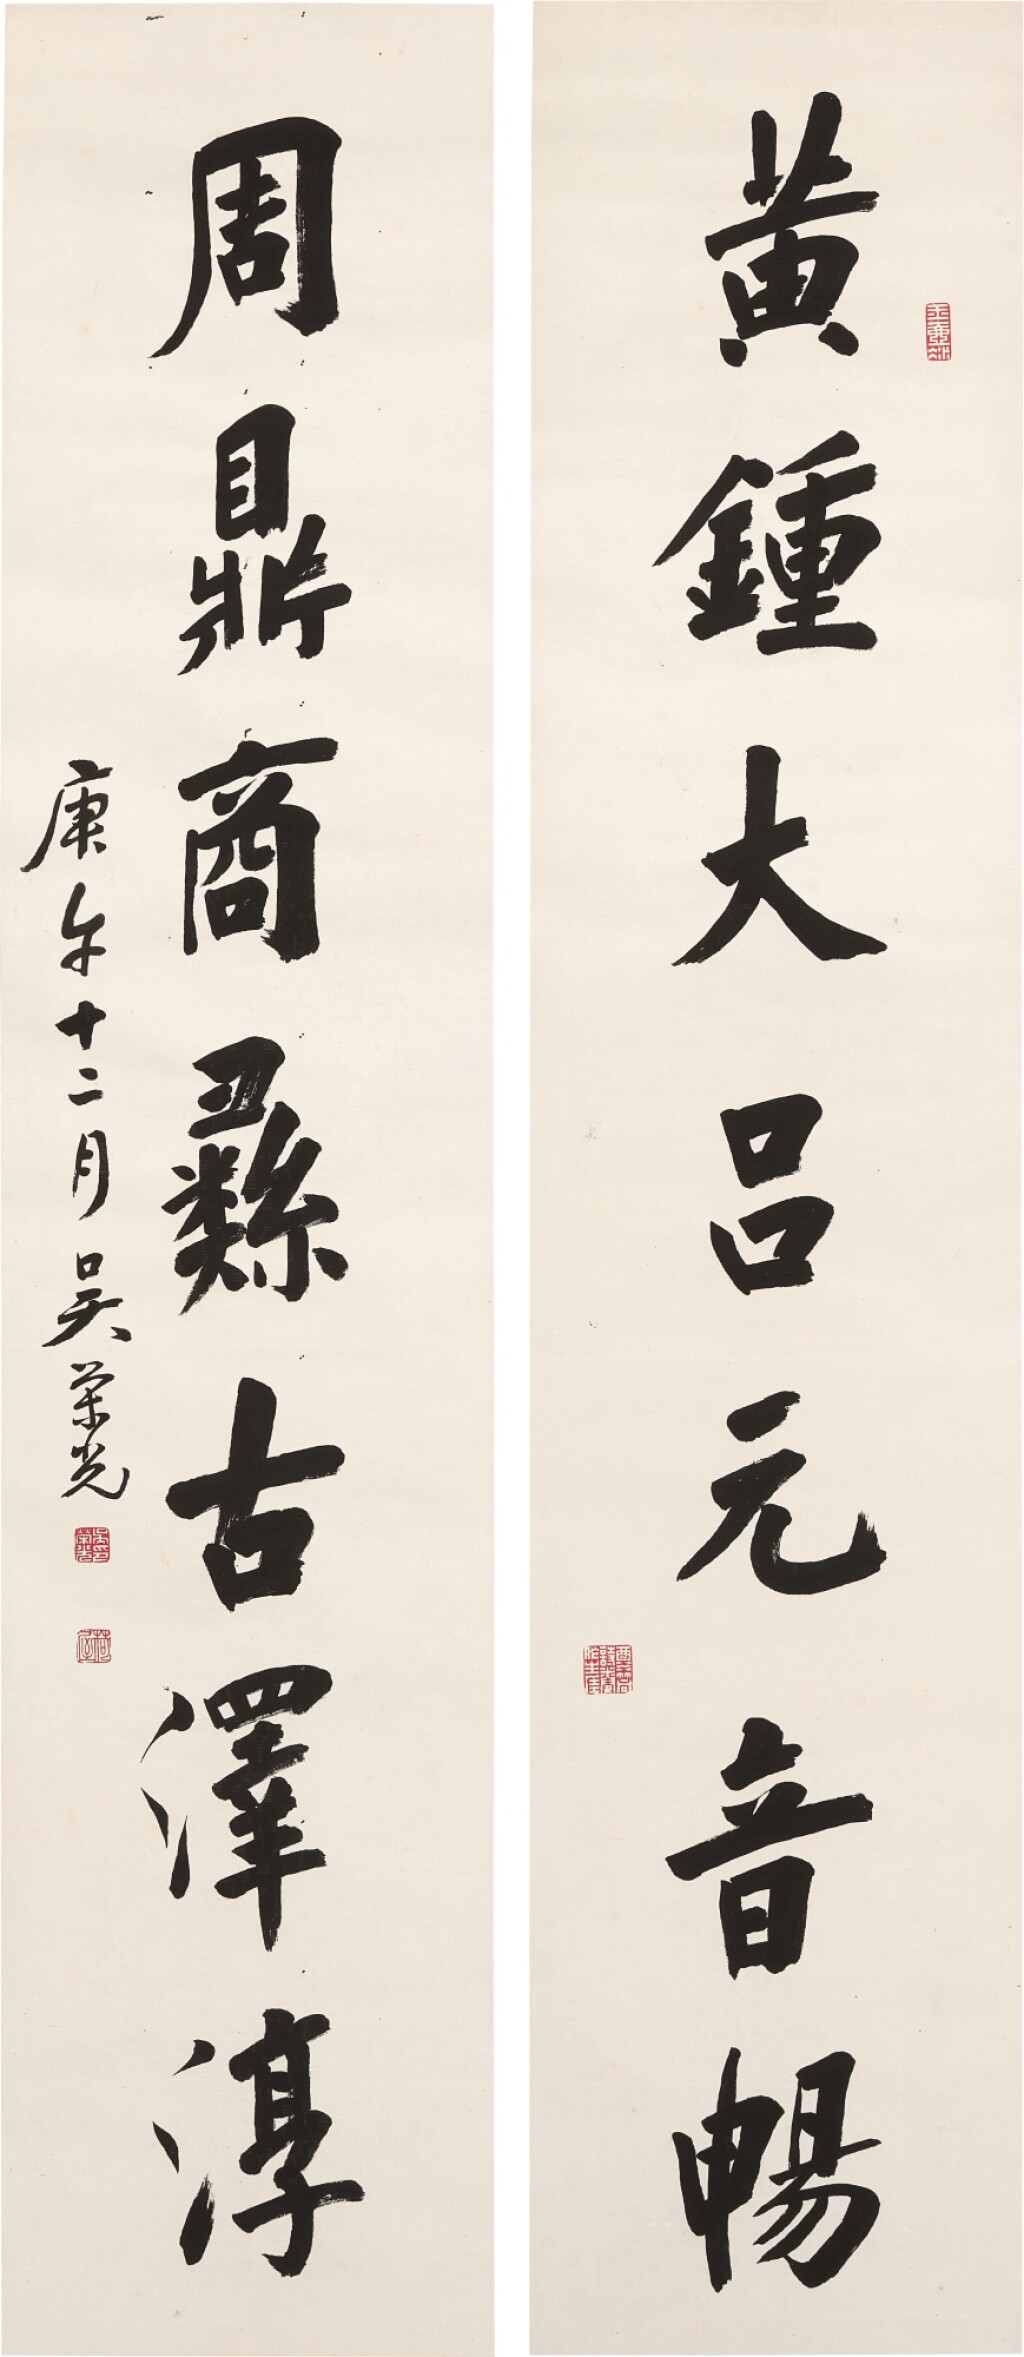 黄鍾大呂元音暢
周鼎商彝古澤淳
庚午十二月吴荣光